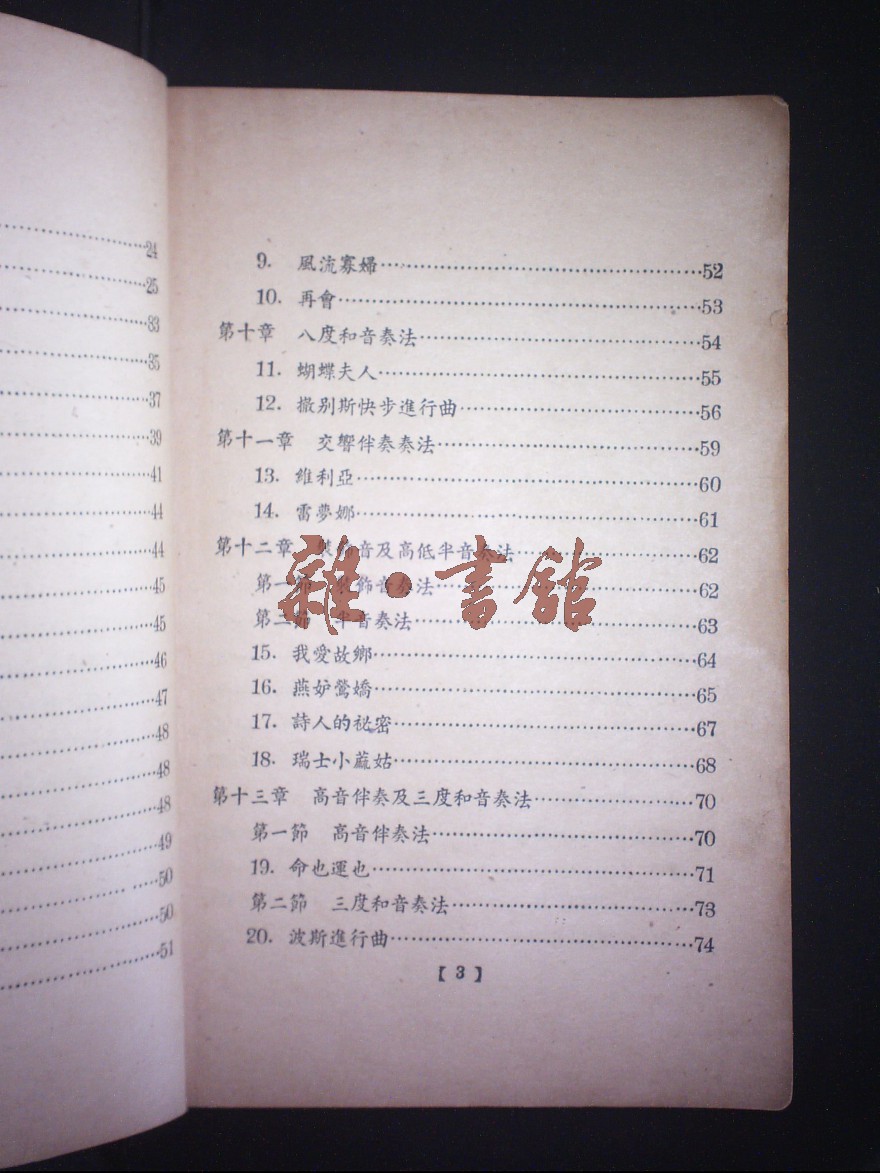 24
25
83
35
37
39
41
44
44
45
45
46
47
48
48
48
49
50
50
51
9. 風流寡婦……52
10. 再會……53
第十章 八度和音奏法……54
11. 蝴蝶夫人……55
12. 撒別斯快步進行曲……56
第十一章 交響伴奏奏法……59
13. 維利亞……60
14. 雷夢娜……61
第十二章 裝飾音及高低半音奏法……62
第一節 裝飾音奏法……62
第二節 半音奏法……63
15. 我愛故鄉……64
16. 燕妒鶯嬌……65
17. 詩人的祕密……67
18. 瑞士小蔴姑……68
第十三章 高音伴奏及三度和音奏法……70
第一節 高音伴奏法……70
19. 命也運也……71
第二節 三度和音奏法……73
20. 波斯進行曲……74
【3】
雜·書館